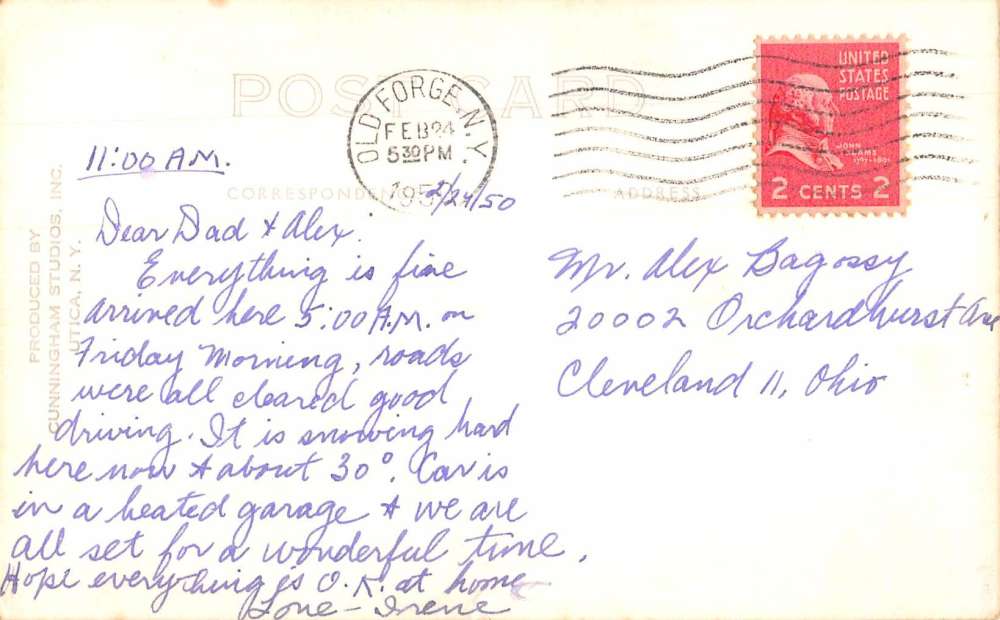 POST CARD
OLD FORGE, N.Y.
FEB 24
5 30 PM
195
UNITED
STATES
POSTAGE
JOHN
ADAMS
1797-1801
2 CENTS 2
CORRESPONDENCE
ADDRESS
PRODUCED BY
CUNNINGHAM STUDIOS, INC.
UTICA, N. Y.
11:00 A.M.
2/24/50
Dear Dad & Alex.
Everything is fine
arrived here 5:00 A.M. on
Friday Morning, roads
were all cleared good
driving. It is snowing hard
here now & about 30°. Car is
in a heated garage & we are
all set for a wonderful time.
Hope everything is O.K. at home
Love - Irene
Mr. Alex Bagossy
20002 Orchardhurst Ave
Cleveland 11, Ohio